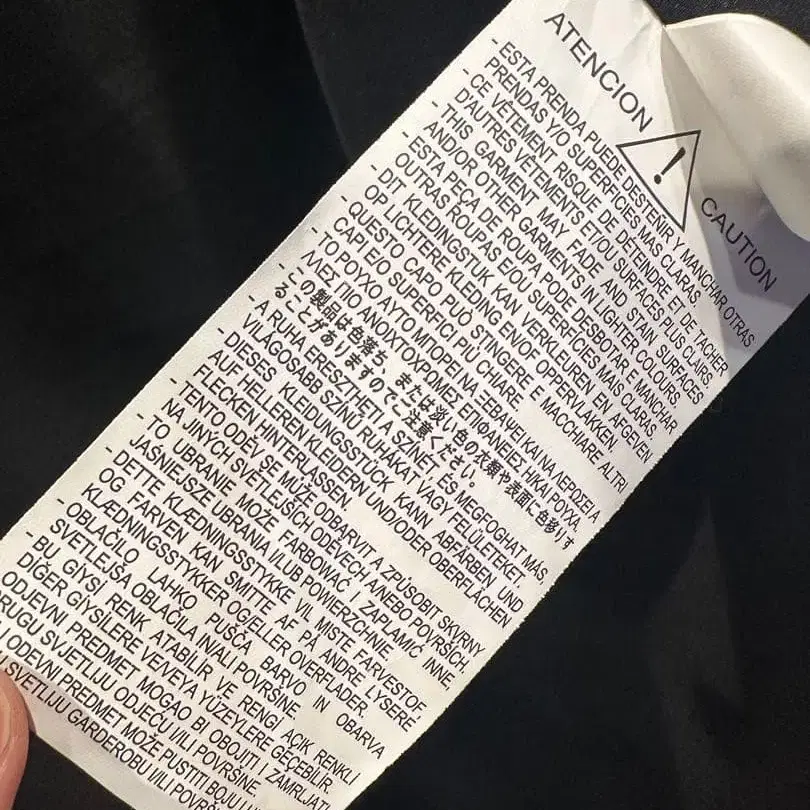 ATENCION
CAUTION
- ESTA PRENDA PUEDE DESTEÑIR Y MANCHAR OTRAS
PRENDAS Y/O SUPERFICIES MAS CLARAS.
- CE VÊTEMENT RISQUE DE DÉTEINDRE ET DE TACHER
D'AUTRES VÊTEMENTS ET/OU SURFACES PLUS CLAIRS.
- THIS GARMENT MAY FADE AND STAIN SURFACES
AND/OR OTHER GARMENTS IN LIGHTER COLOURS.
- ESTA PEÇA DE ROUPA PODE DESBOTAR E MANCHAR
OUTRAS ROUPAS E/OU SUPERFÍCIES MAIS CLARAS.
- DIT KLEDINGSTUK KAN VERKLEUREN EN AFGEVEN
OP LICHTERE KLEDING EN/OF OPPERVLAKKEN.
- QUESTO CAPO PUÒ STINGERE E MACCHIARE ALTRI
CAPI E/O SUPERFICI PIÙ CHIARE.
- ΤΟ ΡΟΥΧΟ ΑΥΤΟ ΜΠΟΡΕΙ ΝΑ ΞΕΒΑΨΕΙ ΚΑΙ ΝΑ ΛΕΡΩΣΕΙ Α
ΛΕΣ ΠΙΟ ΑΝΟΙΧΤΟΧΡΩΜΕΣ ΕΠΙΦΑΝΕΙΕΣ Ή/ΚΑΙ ΡΟΥΧΑ.
- この製品は色落ち、または淡い色の衣類や表面に色移りす
ることがありますのでご注意ください。
- A RUHA ERESZTHETI A SZÍNÉT ÉS MEGFOGHAT MÁS,
VILÁGOSABB SZÍNŰ RUHÁKAT VAGY FELÜLETEKET
- DIESES KLEIDUNGSSTÜCK KANN ABFÄRBEN UND
AUF HELLEREN KLEIDERN UND/ODER OBERFLÄCHEN
FLECKEN HINTERLASSEN
- TENTO ODĚV SE MŮŽE ODBARVIT A ZPŮSOBIT SKVRNY
NA JINÝCH SVĚTLEJŠÍCH ODĚVECH ANEBO POVRŠÍCH.
- TO UBRANIE MOŻE FARBOWAĆ I ZAPLAMIĆ INNE,
JAŚNIEJSZE UBRANIA I/LUB POWIERZCHNIE.
- DETTE KLÆDNINGSSTYKKE VIL MISTE FARVESTOF
OG FARVEN KAN SMITTE AF PÅ ANDRE LYSERE
KLÆDNINGSSTYKKER OG/ELLER OVERFLADER.
- OBLAČILO LAHKO PUŠČA BARVO IN OBARVA
SVETLEJŠA OBLAČILA IN/ALI POVRŠINE.
- BU GİYSİ RENK ATABİLİR VE RENGİ AÇIK RENKLİ
DİĞER GİYSİLERE VE/VEYA YÜZEYLERE GEÇEBİLİR.
ODJEVNI PREDMET MOGAO BI OBOJITI I ZAMRLJATI
DRUGU SVJETLIJU ODJEĆU I/ILI POVRŠINE.
ODEVNI PREDMET MOŽE PUSTITI BOJU I
SVETLIJU GARDEROBU I/ILI